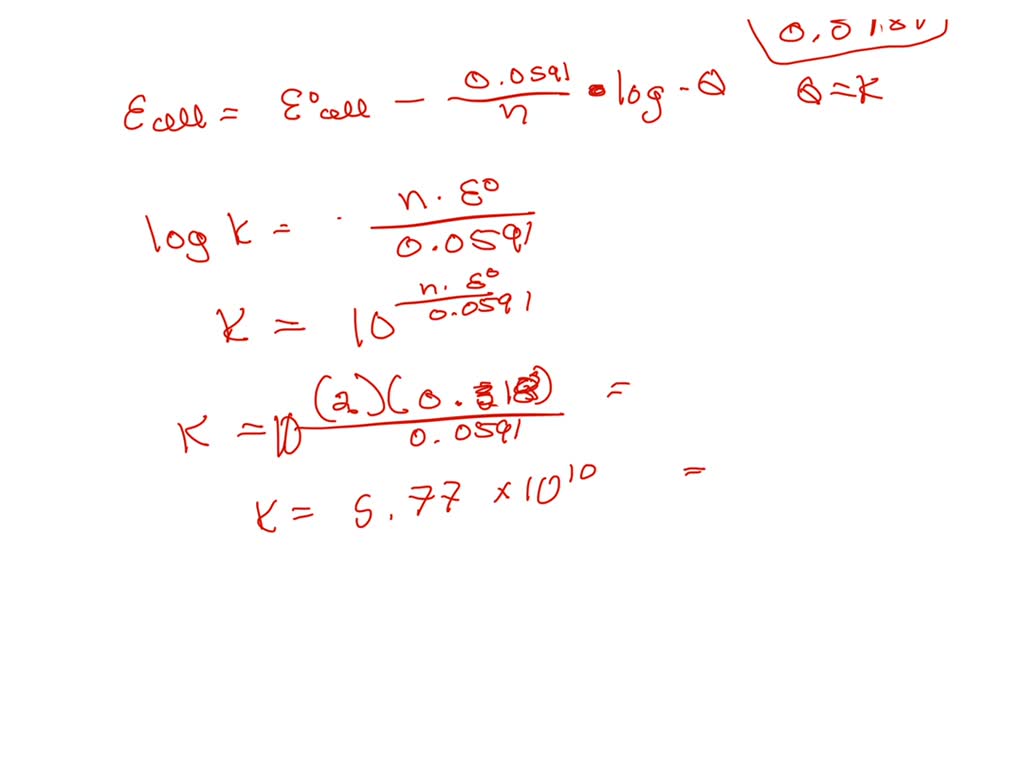 Ɛcell = Ɛ°cell - 0.0591/n • log - Q Q = K
log K = n · Ɛ°/0.0591
K = 10^(n · Ɛ°/0.0591)
K = 10^((2)(0. )/0.0591) =
K = 5.77 × 10^10 =